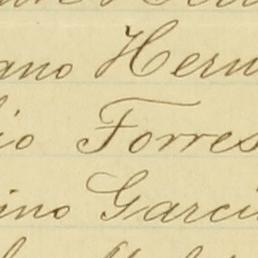 ano Hern
io Torres
ino Garci